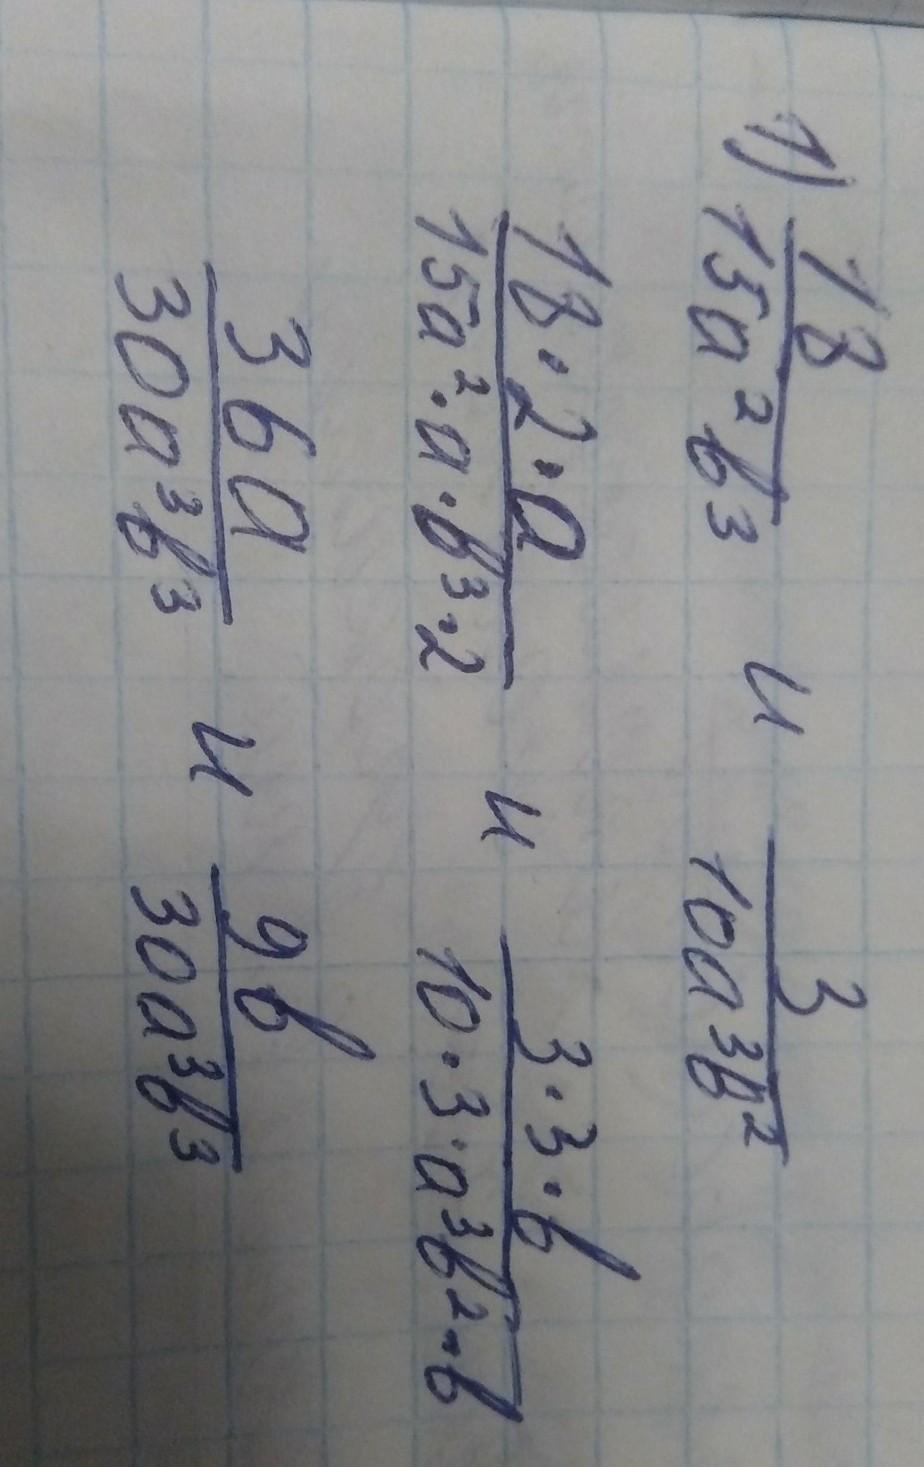 1) 18/15a²b³ и 3/10a³b²
18·2·a/15a²·a·b³·2 и 3·3·b/10·3·a³b²·b
36a/30a³b³ и 9b/30a³b³